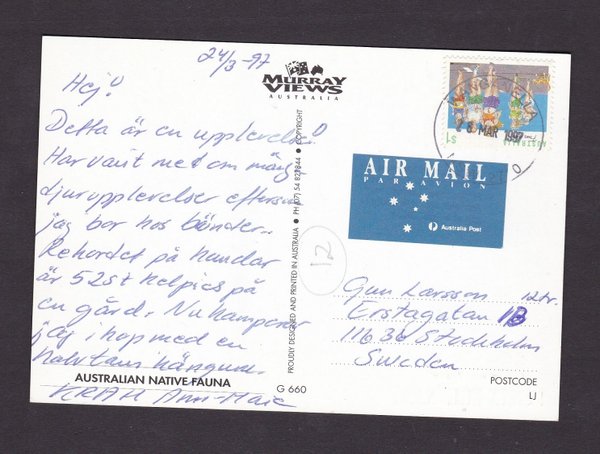 24/3-97
Hej!
Detta är en upplevelse!
Har varit med om mång
djurupplevelser eftersom
jag bor hos bönder..
Rekordet på hundar
är 52st kelpies på
en gård. Nu kamperar
jag ihop med en
hängiven.
KRAM Ann-Marie
AUSTRALIAN NATIVE FAUNA
MURRAY
VIEWS
AUSTRALIA
PROUDLY DESIGNED AND PRINTED IN AUSTRALIA ● PH (07) 54 821844 ● COPYRIGHT
G 660
12
AUSTRALIA
$1
MAR 1997
AIR MAIL
PAR AVION
Australia Post
Gun Larsson 12tr.
Erstagatan 1B
116 36 Stockholm
Sweden
POSTCODE
LJ